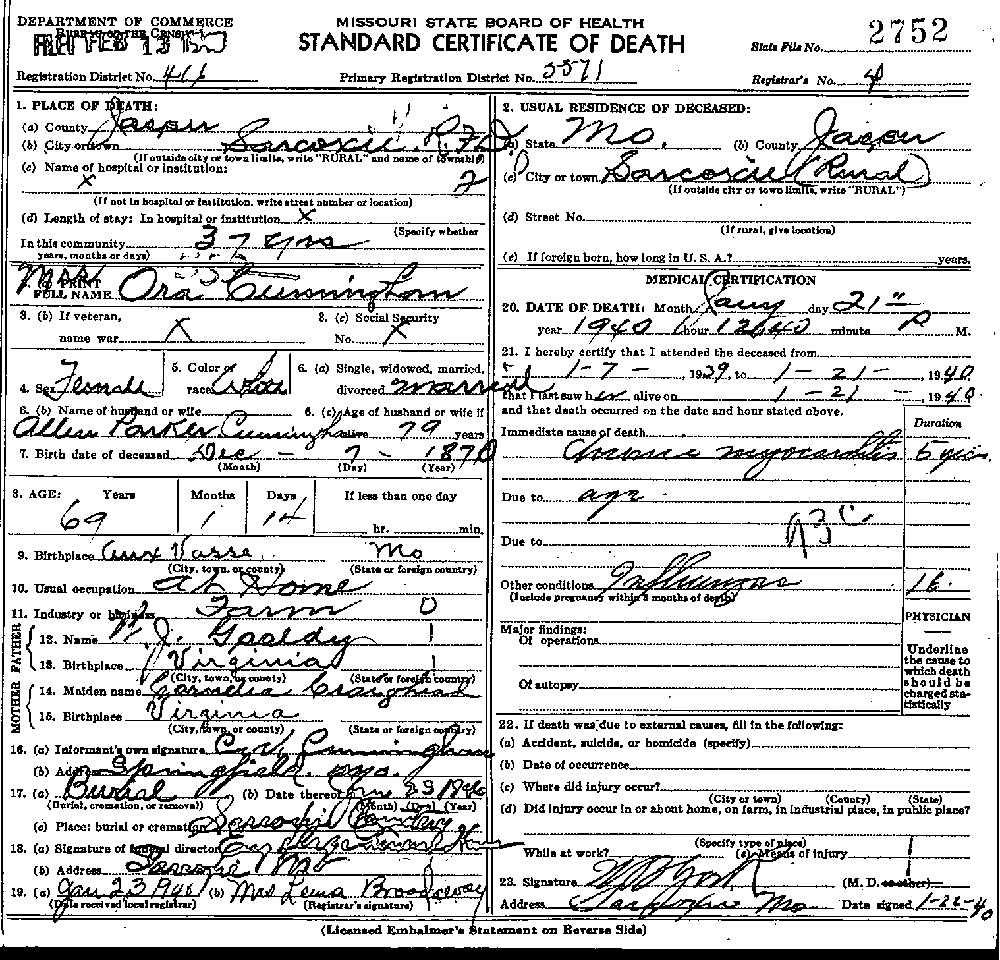 DEPARTMENT OF COMMERCE
MISSOURI STATE BOARD OF HEALTH
STANDARD CERTIFICATE OF DEATH
State File No. 2752
FEB 13
Registration District No. 416
Primary Registration District No. 5571
Registrar's No. 4
1. PLACE OF DEATH:
(a) County Jasper
(b) City or town Sarcoxie R.F.D
(If outside city or town limits, write "RURAL" and name of township)
(c) Name of hospital or institution:
X 2
(If not in hospital or institution, write street number or location)
(d) Length of stay: In hospital or institution X
(Specify whether
In this community 37 yrs
years, months or days)
3. (a) PRINT FULL NAME Mrs Ora Cunningham
3. (b) If veteran, name war X
3. (c) Social Security No. X
4. Sex Female
5. Color or race White
6. (a) Single, widowed, married, divorced married
6. (b) Name of husband or wife Allen Parker Cunningham
6. (c) Age of husband or wife if alive 79 years
7. Birth date of deceased Dec - 7 - 1870
(Month) (Day) (Year)
8. AGE: Years Months Days If less than one day
69 1 14 hr. min.
9. Birthplace Aux Vasse Mo
(City, town, or county) (State or foreign country)
10. Usual occupation At Home
11. Industry or business Farm 0
FATHER
12. Name J.
13. Birthplace Virginia
(City, town, or county) (State or foreign country)
MOTHER
14. Maiden name Cornelia Craighead
15. Birthplace Virginia
(City, town, or county) (State or foreign country)
16. (a) Informant's own signature Cunningham
(b) Address Springfield. Mo.
17. (a) Burial (b) Date thereof Jan 23 1940
(Burial, cremation, or removal) (Month) (Day) (Year)
(c) Place: burial or cremation Sarcoxie Cemetery
18. (a) Signature of funeral director
(b) Address Sarcoxie Mo
19. (a) Jan 23 1940 (b) Mrs Broadway
(Date received local registrar) (Registrar's signature)
2. USUAL RESIDENCE OF DECEASED:
(a) State Mo. (b) County Jasper
(c) City or town Sarcoxie (Rural)
(If outside city or town limits, write "RURAL")
(d) Street No.
(If rural, give location)
(e) If foreign born, how long in U. S. A.? years.
MEDICAL CERTIFICATION
20. DATE OF DEATH: Month Jany day 21"
year 1940 hour 12:40 minute P M.
21. I hereby certify that I attended the deceased from
1-7-, 1939, to 1-21-, 1940.
that I last saw her alive on 1-21-, 1940
and that death occurred on the date and hour stated above.
Duration
Immediate cause of death
Chronic myocarditis 5 yrs.
Due to age
93 C
Due to
Other conditions Influenza 16
(Include pregnancy within 3 months of death)
PHYSICIAN
Major findings:
Of operations
Of autopsy
Underline the cause to which death should be charged statistically
22. If death was due to external causes, fill in the following:
(a) Accident, suicide, or homicide (specify)
(b) Date of occurrence
(c) Where did injury occur?
(City or town) (County) (State)
(d) Did injury occur in or about home, on farm, in industrial place, in public place?
(Specify type of place)
While at work? (e) Means of injury
23. Signature (M. D. or other)
Address Sarcoxie Mo Date signed 1-22-40
(Licensed Embalmer's Statement on Reverse Side)